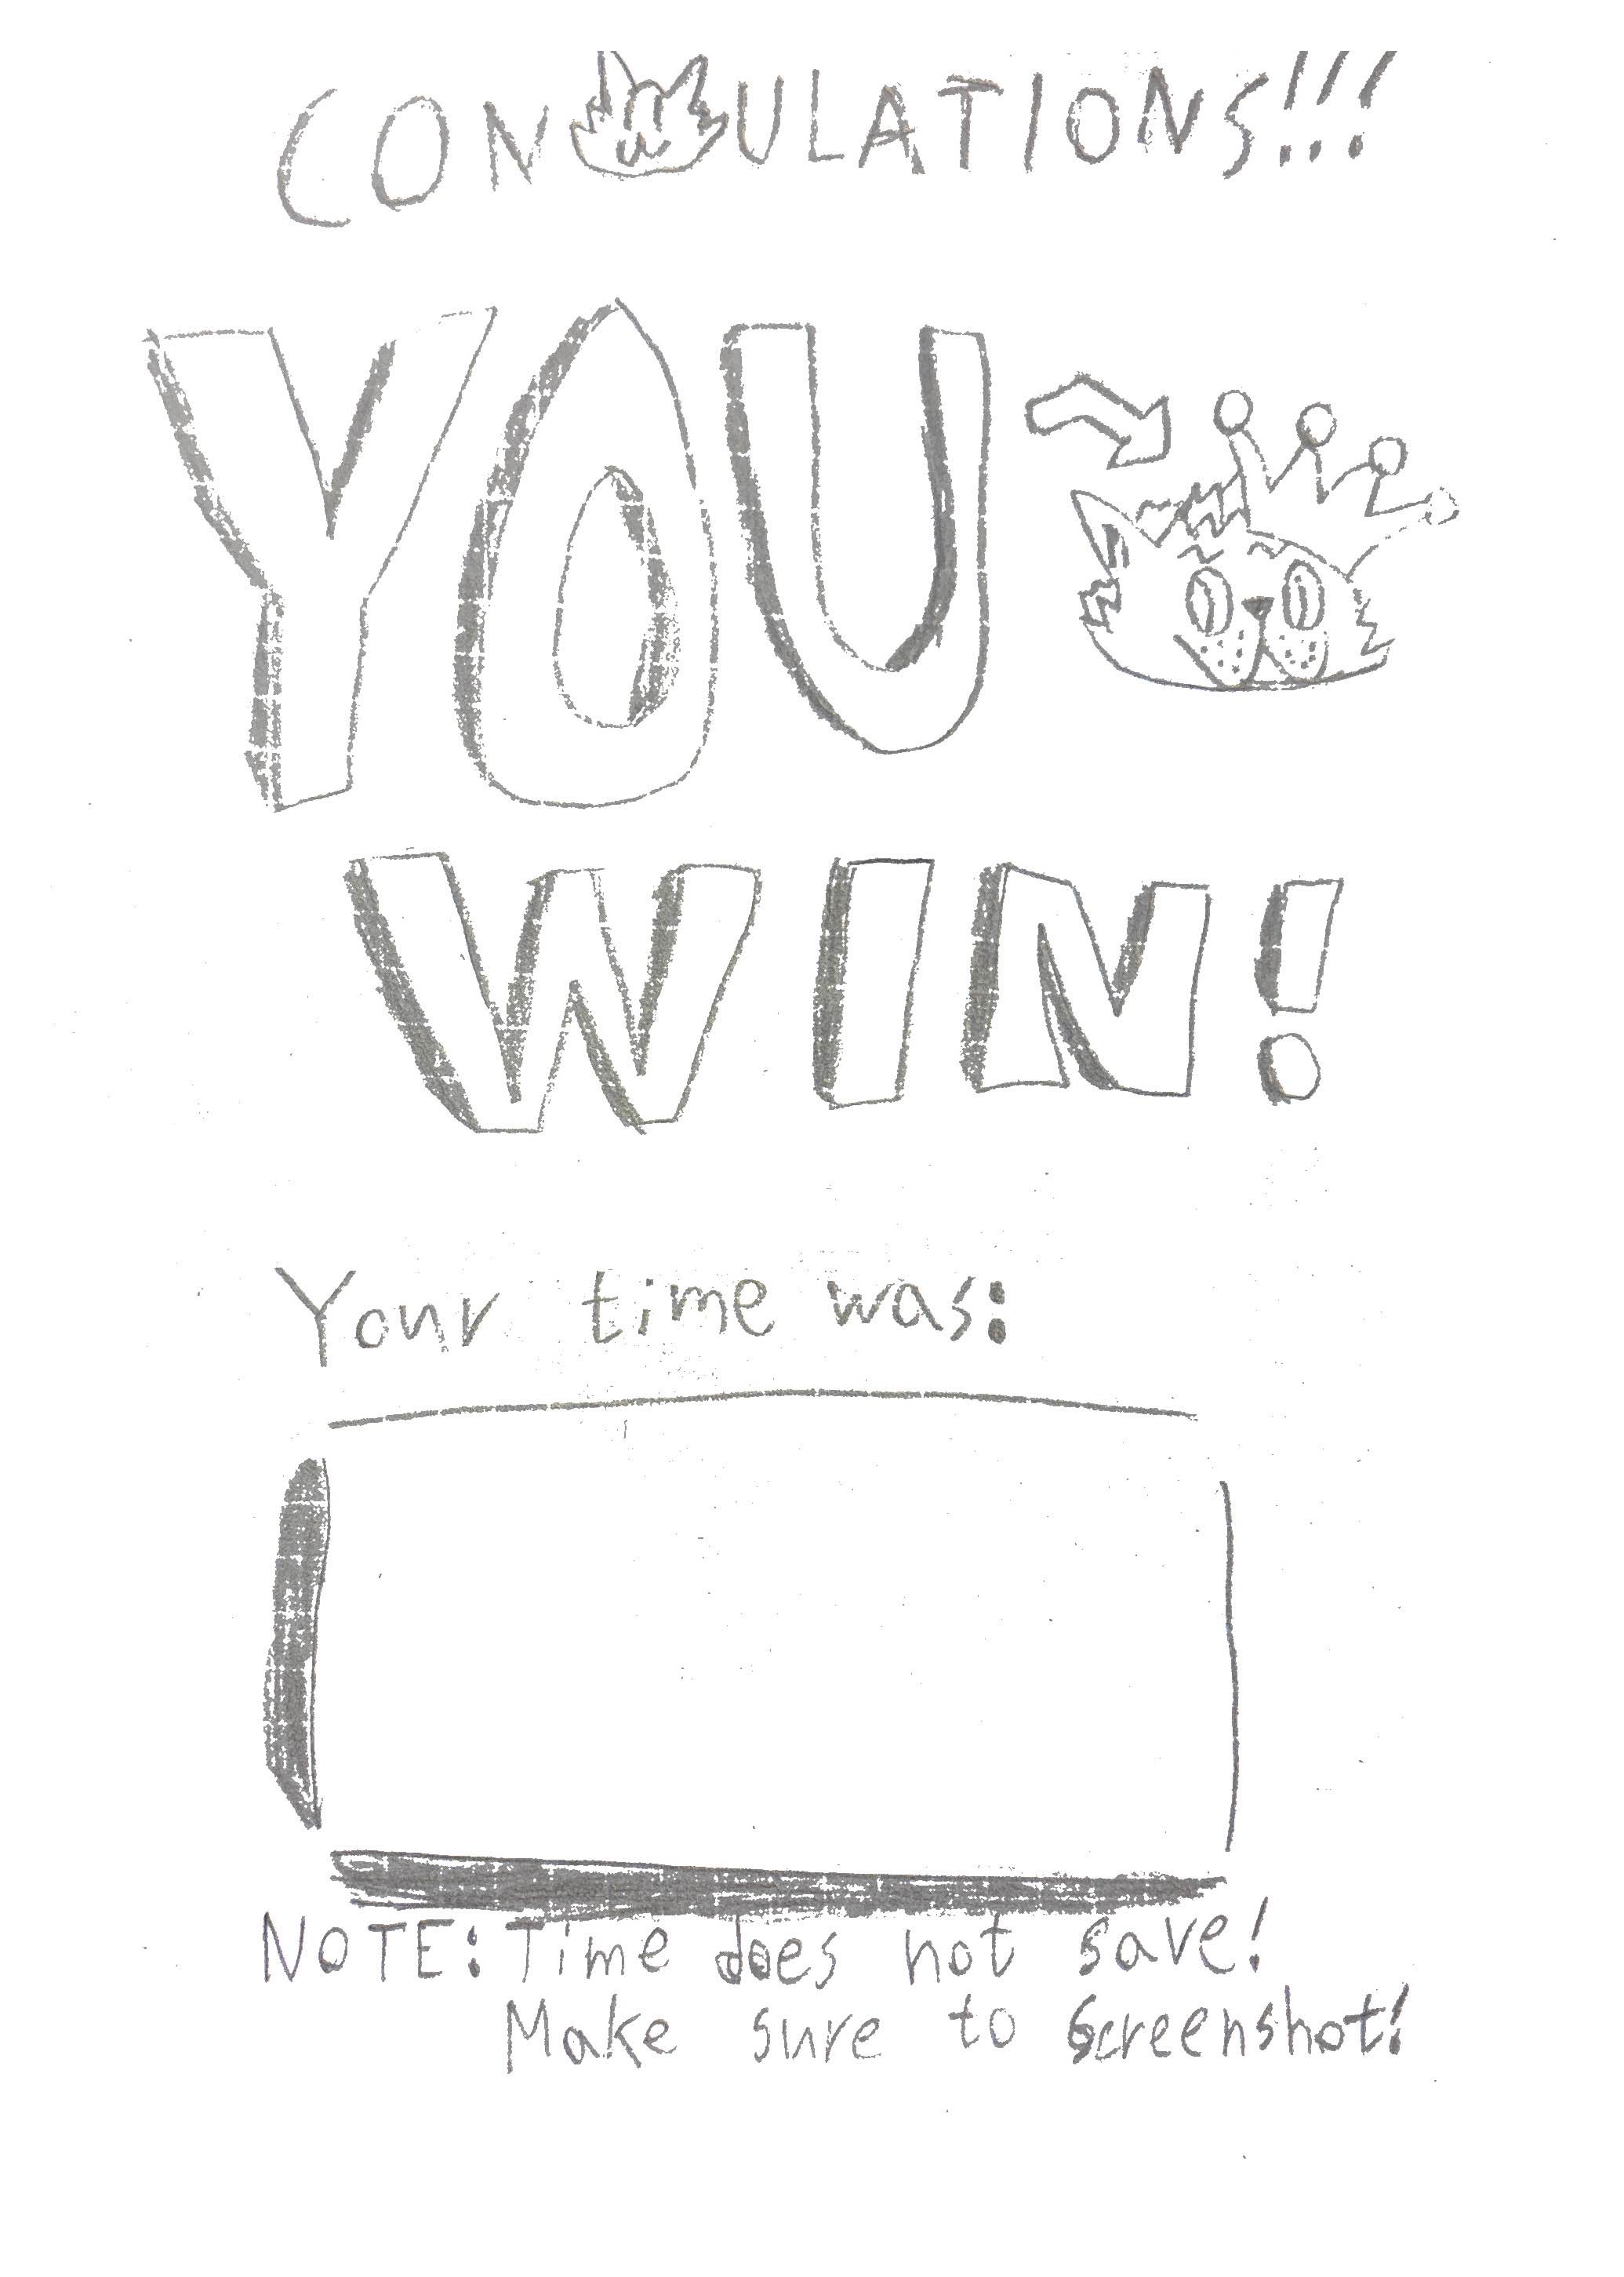 CON ULATIONS!!!
YOU
WIN!
Your time was:
NOTE: Time does not save!
Make sure to Screenshot!